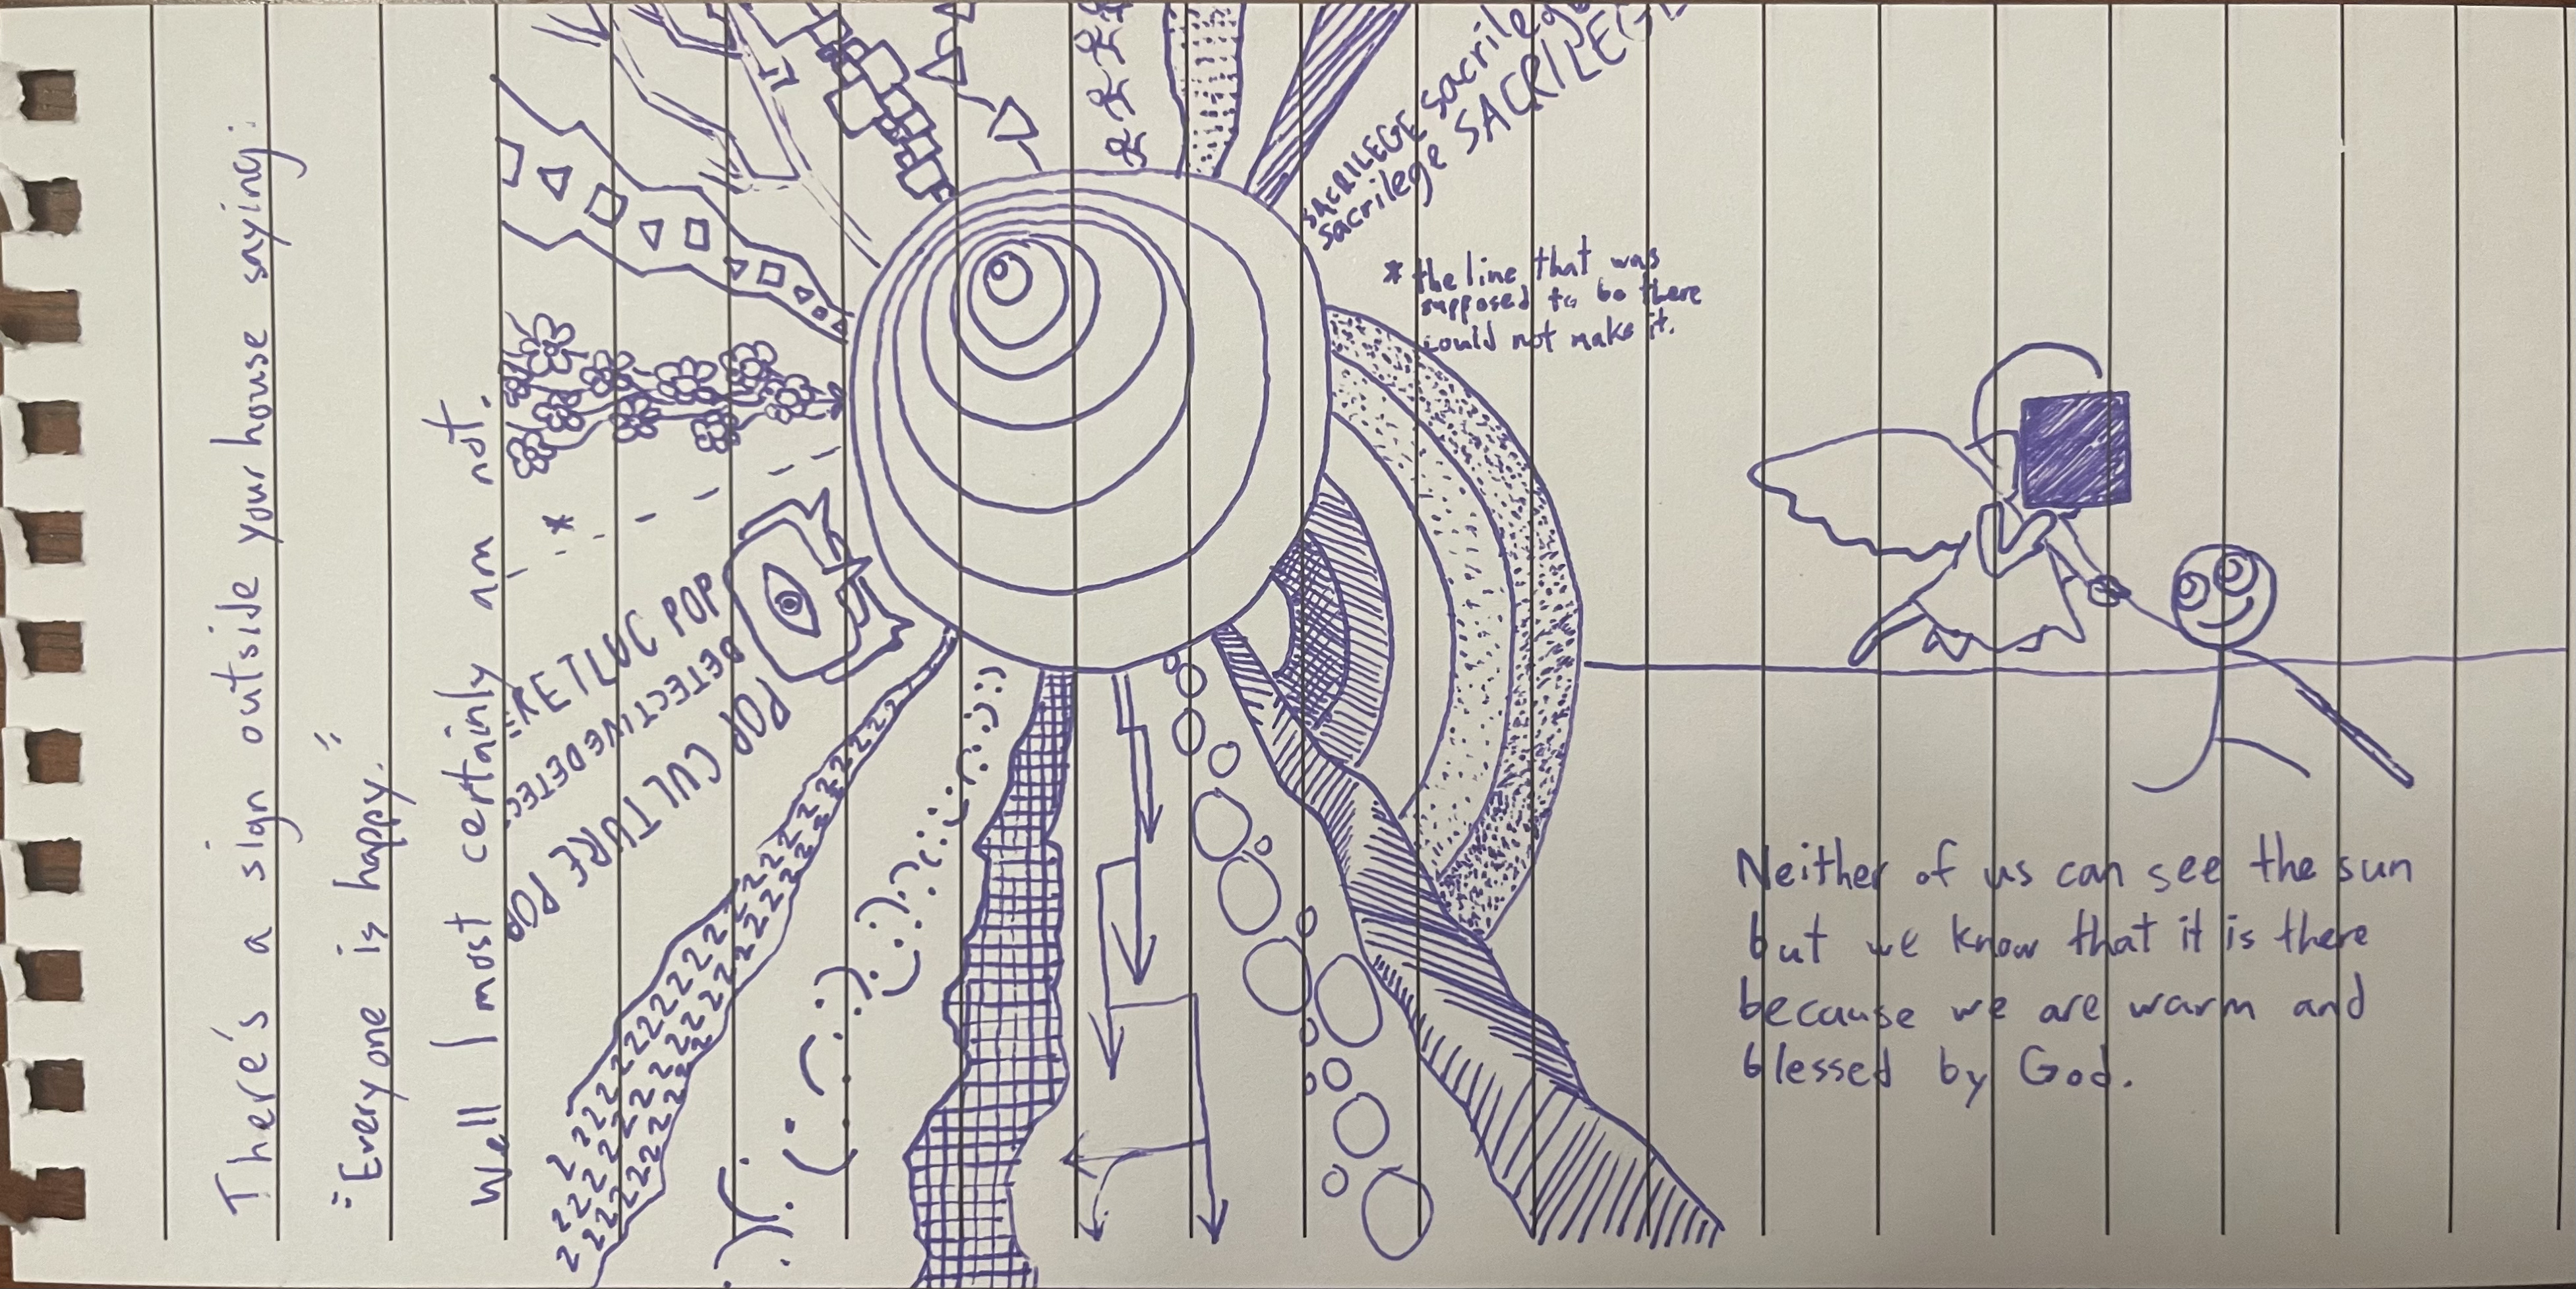 There's a sign outside your house saying:
"Everyone is happy."
Well I most certainly am not.
POP
DETECTIVEDETEC
POP CULTURE POP
SACRILEGE sacrileg
sacrilege SACRILEG
* the line that was
supposed to be there
could not make it.
*
Neither of us can see the sun
but we know that it is there
because we are warm and
blessed by God.